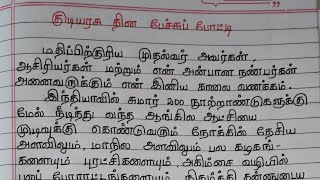 குடியரசு தின பேச்சுப் போட்டி
மதிப்பிற்குரிய முதல்வர் அவர்கள்,
ஆசிரியர்கள் மற்றும் என் அன்பான நண்பர்கள்
அனைவருக்கும் என் இனிய காலை வணக்கம்.
இந்தியாவில் சுமார் 200 நூற்றாண்டுகளுக்கு
மேல் நீடித்து வந்த ஆங்கில ஆட்சியை
முடிவுக்கு கொண்டுவரும் நோக்கில் தேசிய
அளவிலும், மாநில அளவிலும் பல கழகங்-
களையும் புரட்சிகளையும், அகிம்சை வழியில்
பலப் போராட்டங்களையும் நிகழ்த்தி